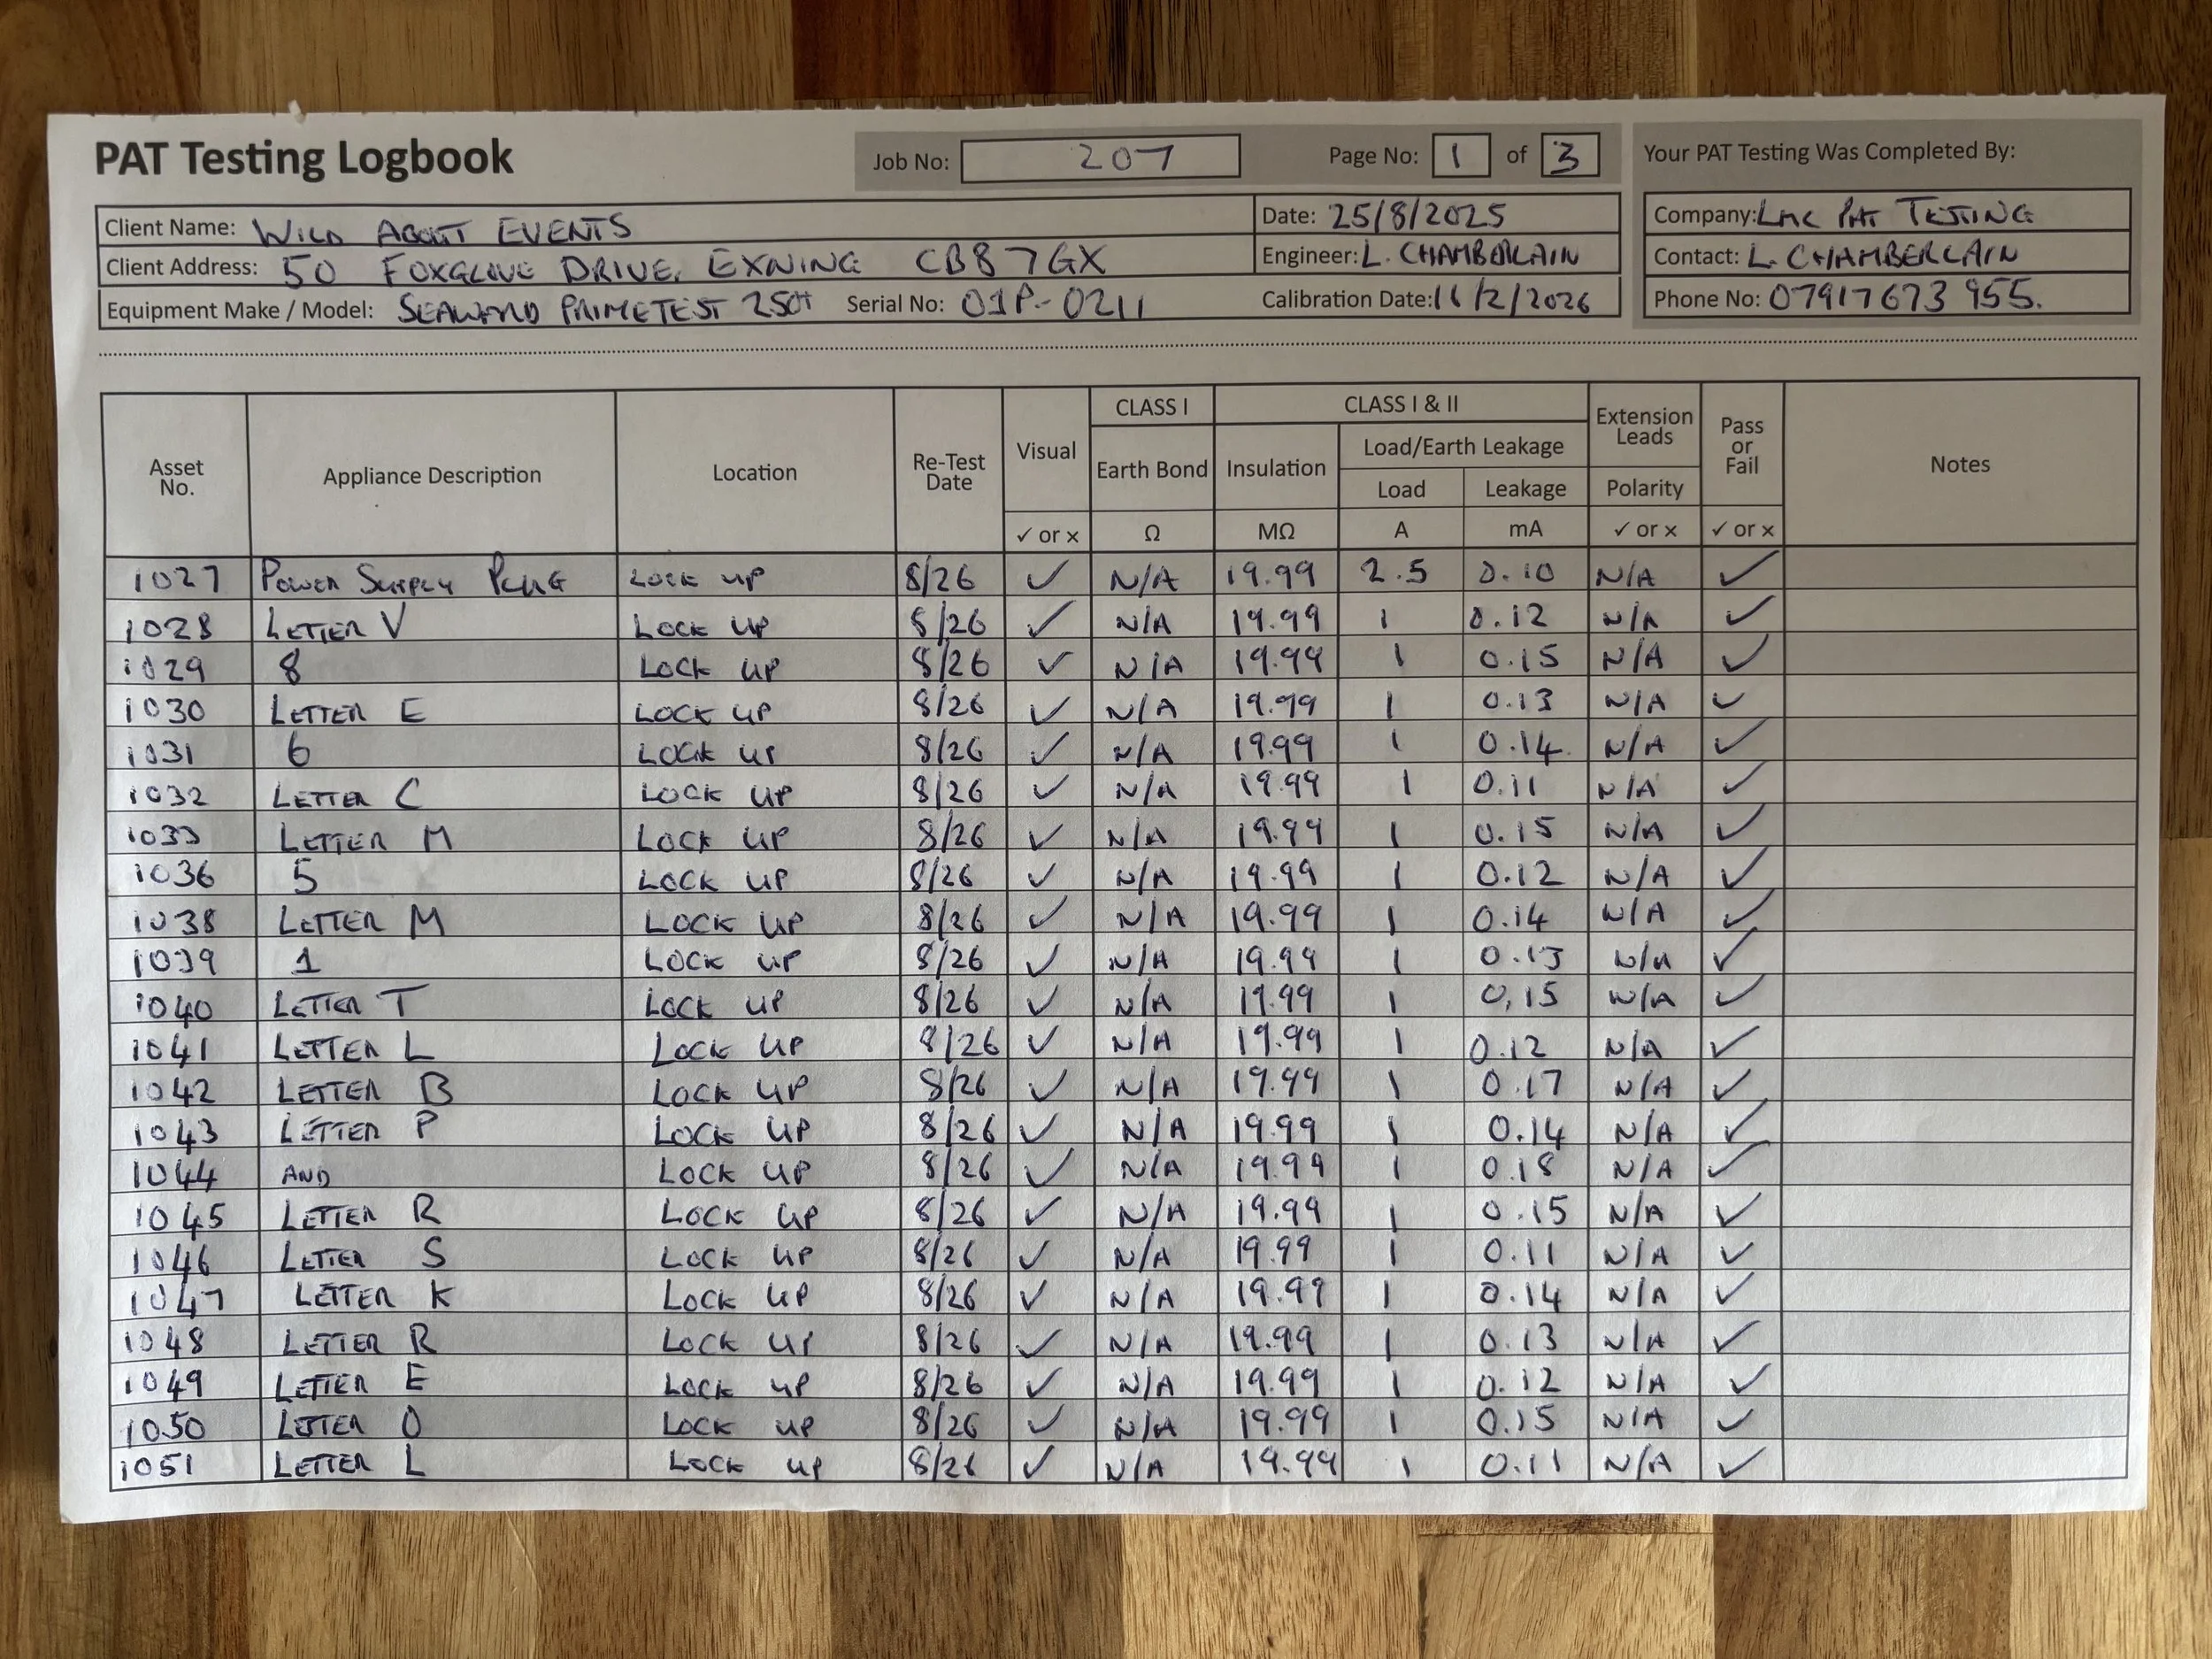 PAT Testing Logbook
Job No: 207 Page No: 1 of 3
Your PAT Testing Was Completed By:
Client Name: WILD ABOUT EVENTS Date: 25/8/2025
Company: LMC PAT TESTING
Client Address: 50 FOXGLOVE DRIVE, EXNING CB8 7GX Engineer: L. CHAMBERLAIN
Contact: L. CHAMBERLAIN
Equipment Make / Model: SEAWARD PRIMETEST 250+ Serial No: 01P-0211 Calibration Date: 16/2/2026
Phone No: 07917673 955.
Asset No. Appliance Description Location Re-Test Date Visual CLASS I CLASS I & II Extension Leads Pass or Fail Notes
Earth Bond Insulation Load/Earth Leakage
Load Leakage Polarity
✓ or x Ω MΩ A mA ✓ or x ✓ or x
1027 POWER SUPPLY PLUG LOCK UP 8/26 ✓ N/A 19.99 2.5 0.10 N/A ✓
1028 LETTER V LOCK UP 8/26 ✓ N/A 19.99 1 0.12 N/A ✓
1029 8 LOCK UP 8/26 ✓ N/A 19.99 1 0.15 N/A ✓
1030 LETTER E LOCK UP 8/26 ✓ N/A 19.99 1 0.13 N/A ✓
1031 6 LOCK UP 8/26 ✓ N/A 19.99 1 0.14 N/A ✓
1032 LETTER C LOCK UP 8/26 ✓ N/A 19.99 1 0.11 N/A ✓
1033 LETTER M LOCK UP 8/26 ✓ N/A 19.99 1 0.15 N/A ✓
1036 5 LOCK UP 8/26 ✓ N/A 19.99 1 0.12 N/A ✓
1038 LETTER M LOCK UP 8/26 ✓ N/A 19.99 1 0.14 N/A ✓
1039 1 LOCK UP 8/26 ✓ N/A 19.99 1 0.13 N/A ✓
1040 LETTER T LOCK UP 8/26 ✓ N/A 19.99 1 0,15 N/A ✓
1041 LETTER L LOCK UP 8/26 ✓ N/A 19.99 1 0.12 N/A ✓
1042 LETTER B LOCK UP 8/26 ✓ N/A 19.99 1 0.17 N/A ✓
1043 LETTER P LOCK UP 8/26 ✓ N/A 19.99 1 0.14 N/A ✓
1044 AND LOCK UP 8/26 ✓ N/A 19.99 1 0.18 N/A ✓
1045 LETTER R LOCK UP 8/26 ✓ N/A 19.99 1 0.15 N/A ✓
1046 LETTER S LOCK UP 8/26 ✓ N/A 19.99 1 0.11 N/A ✓
1047 LETTER K LOCK UP 8/26 ✓ N/A 19.99 1 0.14 N/A ✓
1048 LETTER R LOCK UP 8/26 ✓ N/A 19.99 1 0.13 N/A ✓
1049 LETTER E LOCK UP 8/26 ✓ N/A 19.99 1 0.12 N/A ✓
1050 LETTER O LOCK UP 8/26 ✓ N/A 19.99 1 0.15 N/A ✓
1051 LETTER L LOCK UP 8/26 ✓ N/A 19.99 1 0.11 N/A ✓